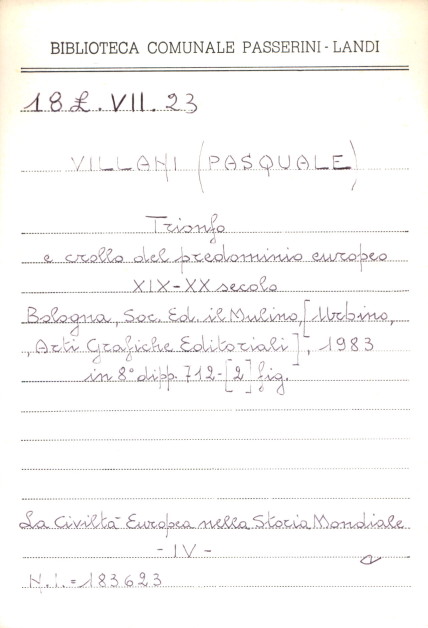 BIBLIOTECA COMUNALE PASSERINI - LANDI
18 £. VII. 23
VILLANI (PASQUALE)
Trionfo
e crollo del predominio europeo
XIX-XX secolo
Bologna, Soc. Ed. il Mulino, [Urbino,
, Arti Grafiche Editoriali], 1983
in 8° di pp. 712-[2] fig.
La Civiltà Europea nella Storia Mondiale
- IV -
N.i. = 183623